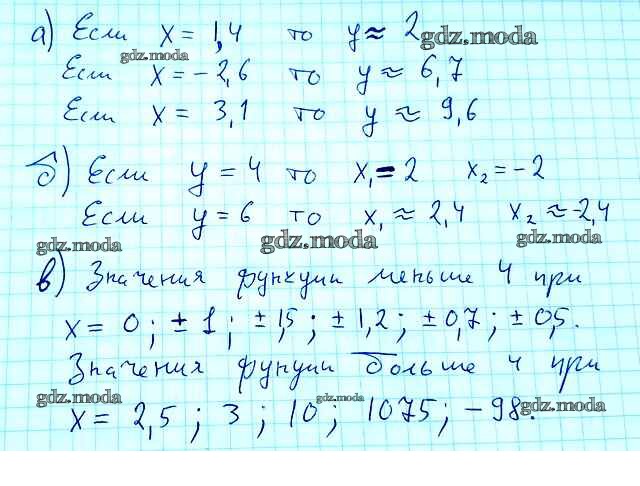 а) Если x = 1,4 то y ≈ 2 gdz.moda
gdz.moda
Если x = -2,6 то y ≈ 6,7
Если x = 3,1 то y ≈ 9,6
б) Если y = 4 то x₁ = 2 x₂ = -2
Если y = 6 то x₁ ≈ 2,4 x₂ ≈ -2,4
gdz.moda gdz.moda gdz.moda
в) Значения функции меньше 4 при
x = 0; ± 1; ± 1,5; ± 1,2; ± 0,7; ± 0,5.
Значения фунуции больше 4 при
gdz.moda gdz.moda gdz.moda
x = 2,5; 3; 10; 1075; -98.